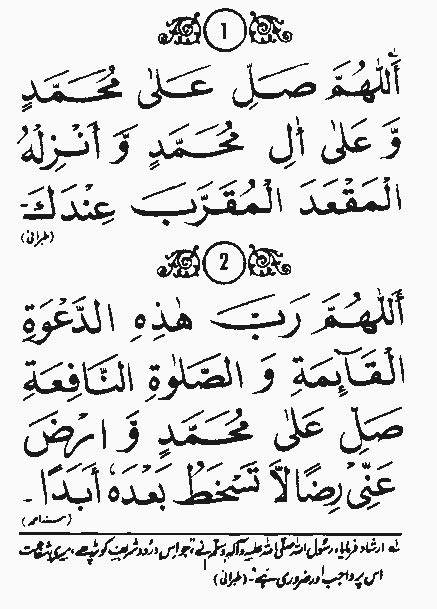 1
اَللّٰهُمَّ صَلِّ عَلٰى مُحَمَّدٍ
وَّ عَلٰى اٰلِ مُحَمَّدٍ وَّ اَنْزِلْهُ
الْمَقْعَدَ الْمُقَرَّبَ عِنْدَكَ-
(طبرانی)
2
اَللّٰهُمَّ رَبَّ هٰذِهِ الدَّعْوَةِ
الْقَآئِمَةِ وَ الصَّلٰوةِ النَّافِعَةِ
صَلِّ عَلٰى مُحَمَّدٍ وَّ ارْضَ
عَنِّىْ رِضًا لَّا تَسْخَطُ بَعْدَهٗ اَبَدًا۔
(مسند احمد)
لہ ارشاد فرمایا، رسول اللہ صلی اللہ علیہ وآلہٖ وسلم نے، جو اس درود شریف کو پڑھے، میری شفاعت
اس پر واجب اور ضروری ہے۔ (طبرانی)